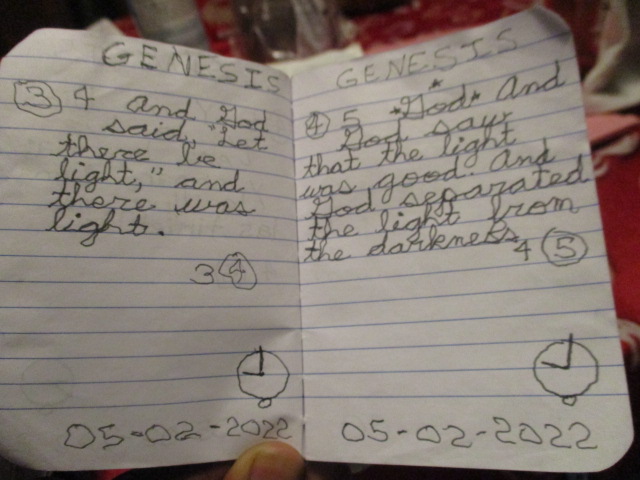 GENESIS
3 4 And God
said, "Let
there be
light," and
there was
light.
3 4
05-02-2022
GENESIS
4 5 *God* And
God saw
that the light
was good. And
God separated
the light from
the darkness
4 5
05-02-2022